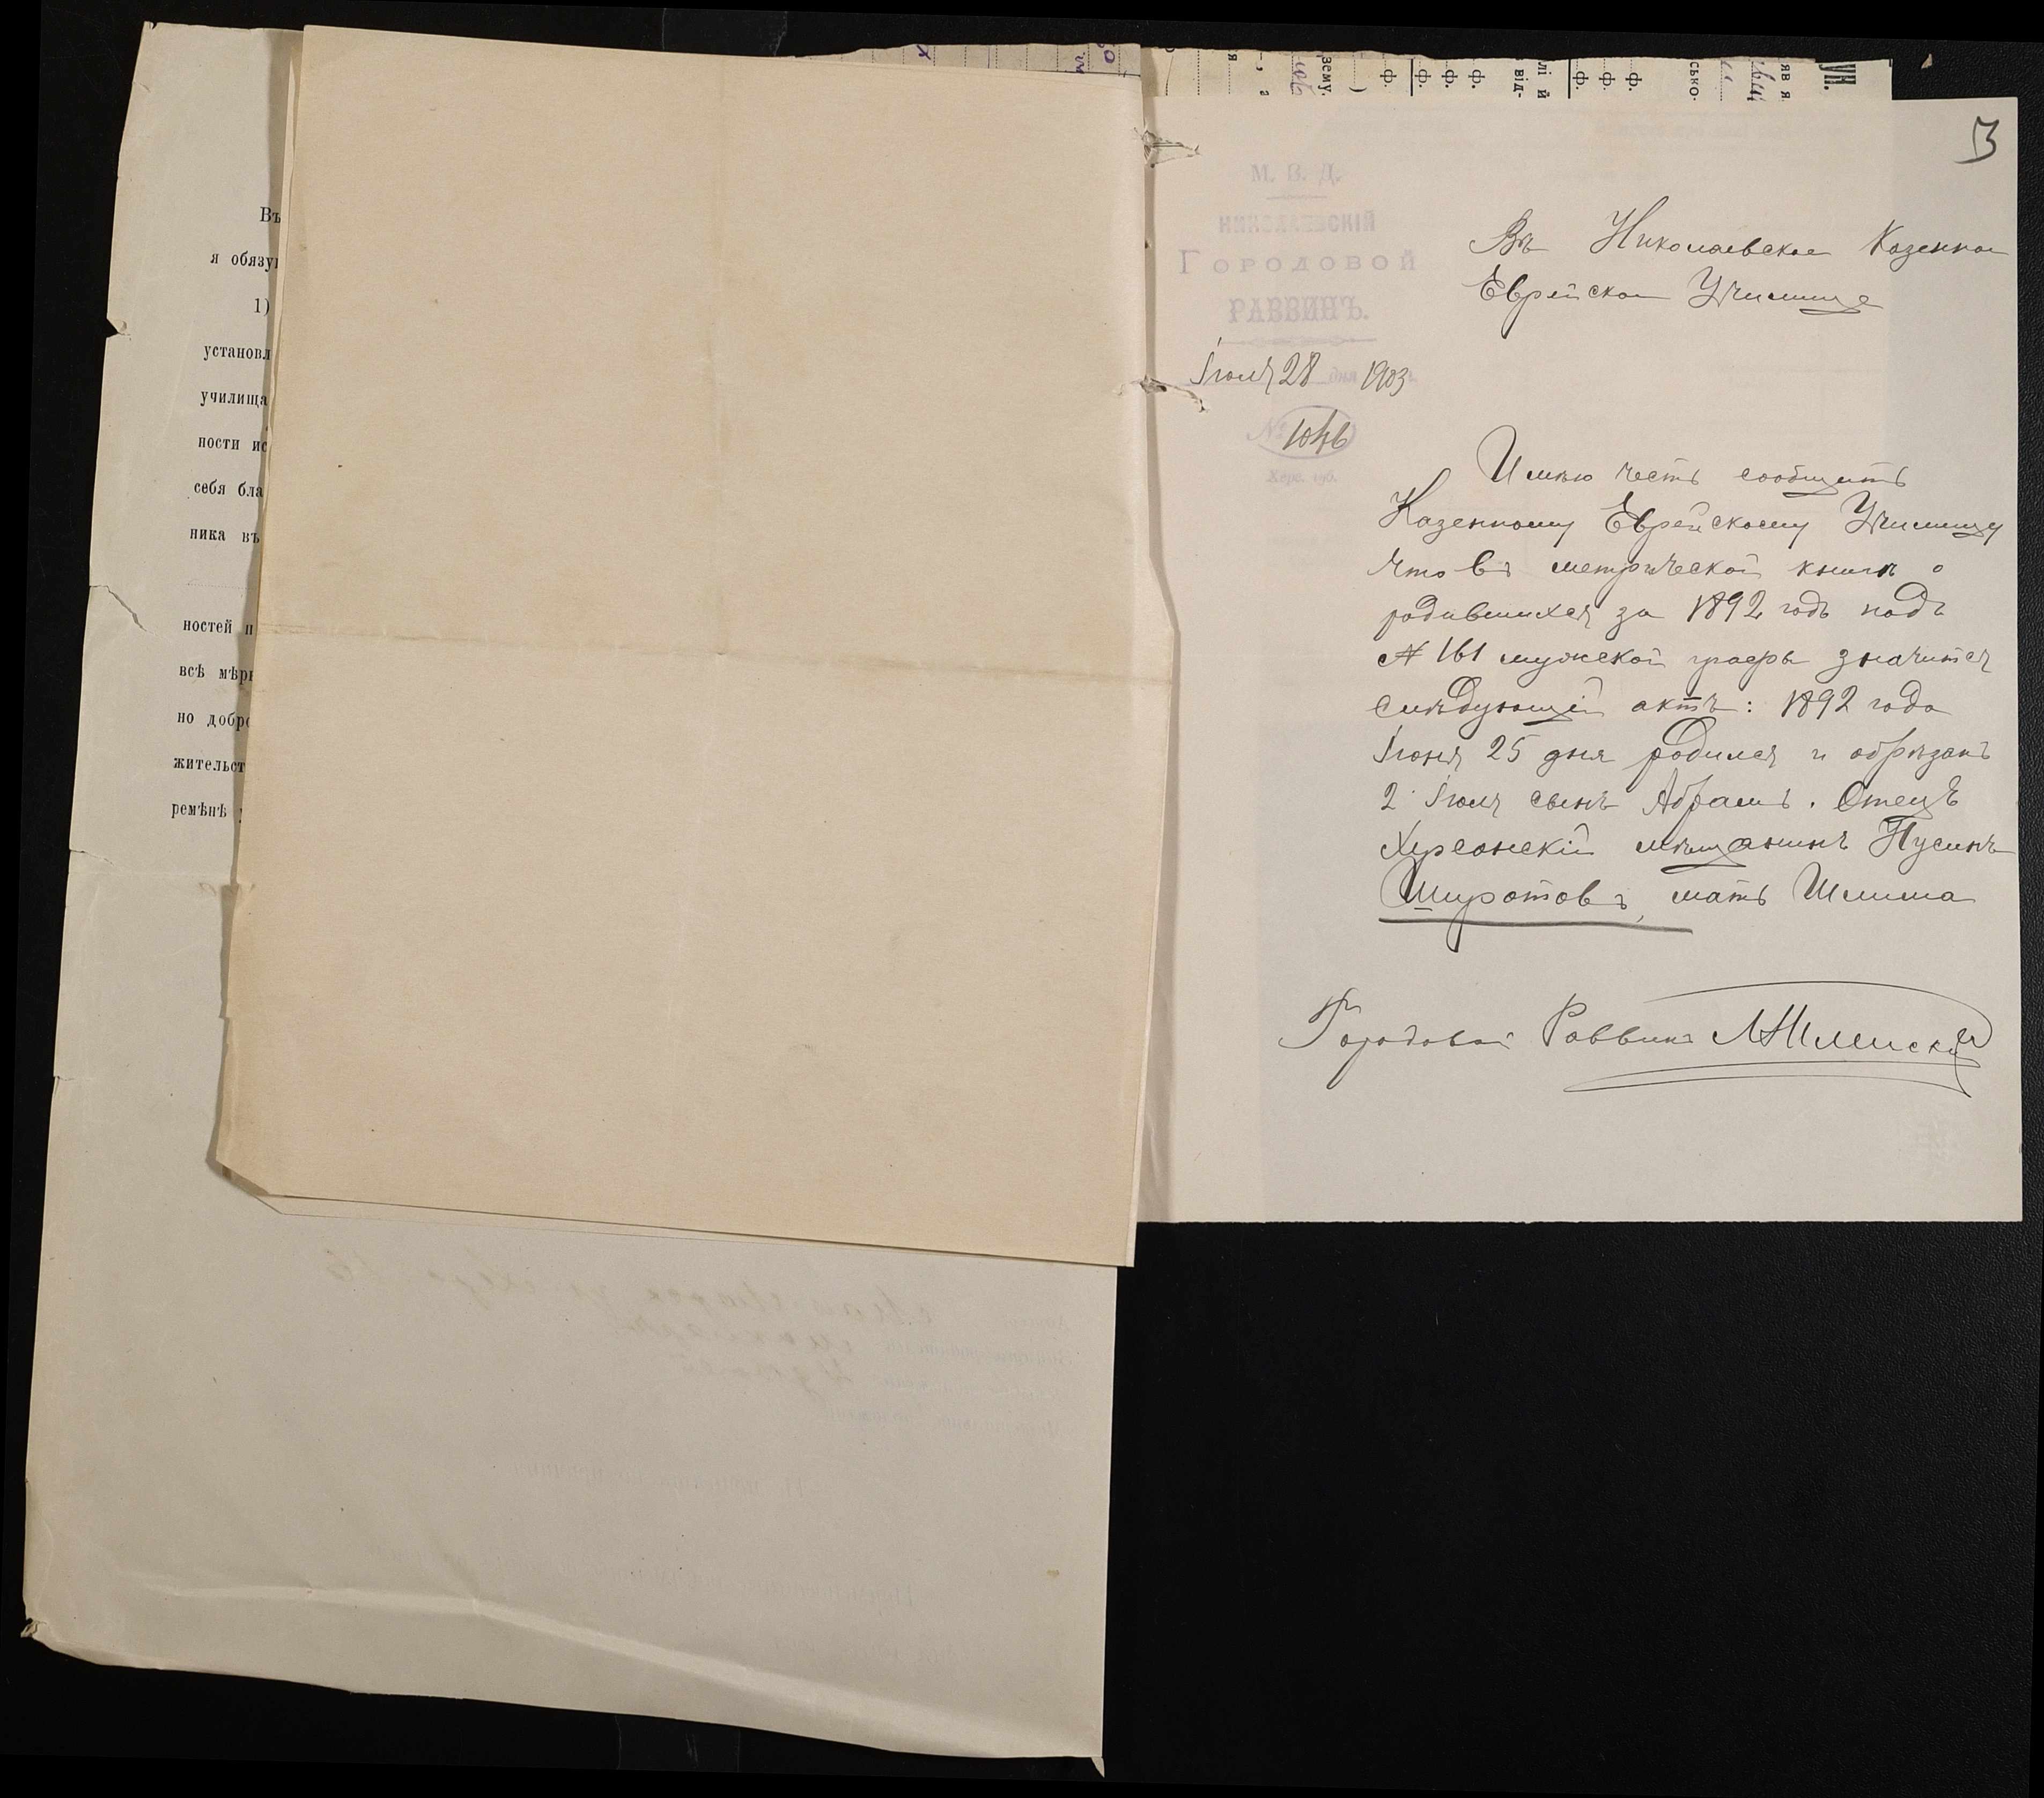 Въ
я обязу
1)
установл
училища
ности ис
себя бла
ника въ
ностей п
всѣ мѣры
но добро
жительст
ремѣнѣ
М. В. Д.
НИКОЛАЕВСКІЙ
ГОРОДОВОЙ
РАВВИНЪ.
Іюля 28 дня 1903
№
Херс. губ.
Въ Николаевское Казенное
Еврейское Училище
Имѣю честь сообщить
Казенному Еврейскому Училищу
что въ метрической книгѣ о
родившихся за 1892 годъ подъ
№ 161 мужской графы значится
слѣдующій актъ: 1892 года
Іюня 25 дня родился и обрѣзанъ
2 Іюля сынъ Абрамъ. Отецъ
Херсонскій мѣщанинъ Нусинъ
Шуротовъ, мать Шлима
Городовой Раввинъ